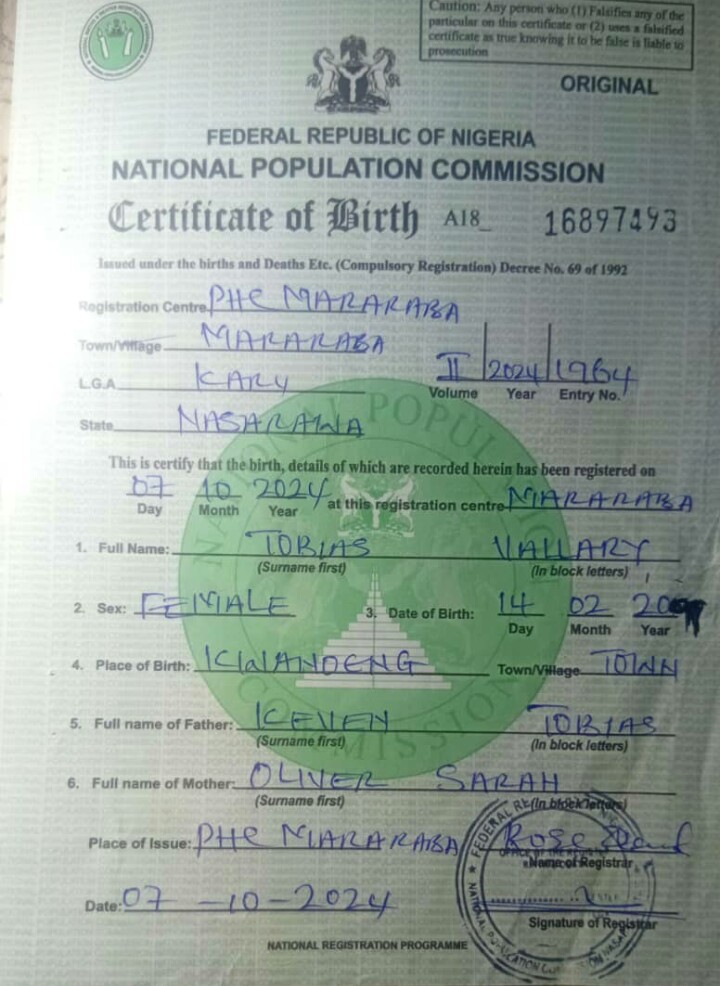 Caution: Any person who (1) Falsifies any of the
particular on this certificate or (2) uses a falsified
certificate as true knowing it to be false is liable to
prosecution
ORIGINAL
FEDERAL REPUBLIC OF NIGERIA
NATIONAL POPULATION COMMISSION
Certificate of Birth A18_ 16897493
Issued under the births and Deaths Etc. (Compulsory Registration) Decree No. 69 of 1992
Registration Centre PHC MARARABA
Town/Village MARARABA
L.G.A KARU II 2024 1964
Volume Year Entry No.
State NASARAWA
This is certify that the birth, details of which are recorded herein has been registered on
07 10 2024 at this registration centre MARARABA
Day Month Year
1. Full Name: TOBIAS VALLARY
(Surname first) (In block letters)
2. Sex: FEMALE 3. Date of Birth: 14 02
Day Month Year
4. Place of Birth: KWANDENG Town/Village TOWN
5. Full name of Father: KEVEN TOBIAS
(Surname first) (In block letters)
6. Full name of Mother: OLIVER SARAH
(Surname first) (In block letters)
Place of Issue: PHC MARARABA Rose
Name of Registrar
Date: 07-10-2024
Signature of Registrar
NATIONAL REGISTRATION PROGRAMME